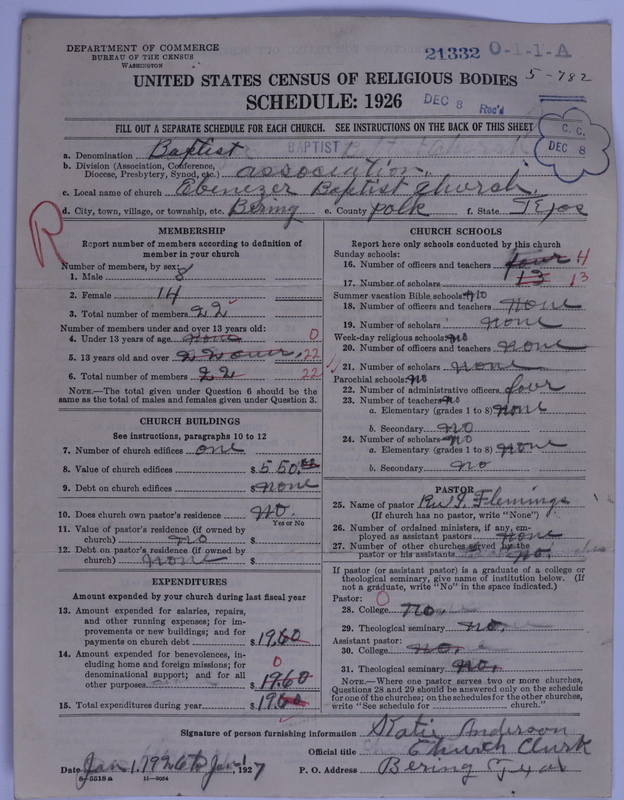 DEPARTMENT OF COMMERCE
BUREAU OF THE CENSUS
WASHINGTON
21332 O-1-1-A
5-782
UNITED STATES CENSUS OF RELIGIOUS BODIES
SCHEDULE: 1926
DEC 8 Rec'd
FILL OUT A SEPARATE SCHEDULE FOR EACH CHURCH. SEE INSTRUCTIONS ON THE BACK OF THIS SHEET
C. C.
DEC 8
a. Denomination Baptist BAPTIST
b. Division (Association, Conference, Diocese, Presbytery, Synod, etc.) association
c. Local name of church Ebenezer Baptist Church
d. City, town, village, or township, etc. Bering e. County Polk f. State Texas
R
MEMBERSHIP
Report number of members according to definition of member in your church
Number of members, by sex:
1. Male 8
2. Female 14
3. Total number of members 22
Number of members under and over 13 years old:
4. Under 13 years of age none 0
5. 13 years old and over 22 over 22
6. Total number of members 22 22
NOTE.—The total given under Question 6 should be the same as the total of males and females given under Question 3.
CHURCH BUILDINGS
See instructions, paragraphs 10 to 12
7. Number of church edifices one
8. Value of church edifices $ 550.
9. Debt on church edifices $ none
10. Does church own pastor's residence? no.
Yes or No
11. Value of pastor's residence (if owned by church) no $
12. Debt on pastor's residence (if owned by church) none $
EXPENDITURES
Amount expended by your church during last fiscal year
13. Amount expended for salaries, repairs, and other running expenses; for improvements or new buildings; and for payments on church debt $ 19.60
14. Amount expended for benevolences, including home and foreign missions; for denominational support; and for all other purposes 0 $ 19.60
15. Total expenditures during year $ 19.60
CHURCH SCHOOLS
Report here only schools conducted by this church
Sunday schools:
16. Number of officers and teachers four 4
17. Number of scholars 13 13
Summer vacation Bible schools: no
18. Number of officers and teachers none
19. Number of scholars none
Week-day religious schools: no
20. Number of officers and teachers none
21. Number of scholars none
Parochial schools: no
22. Number of administrative officers four
23. Number of teachers no
a. Elementary (grades 1 to 8) none
b. Secondary no
24. Number of scholars no
a. Elementary (grades 1 to 8) none
b. Secondary no
PASTOR
25. Name of pastor Flemings
(If church has no pastor, write "None")
26. Number of ordained ministers, if any, employed as assistant pastors none
27. Number of other churches served by the pastor or his assistants no.
If pastor (or assistant pastor) is a graduate of a college or theological seminary, give name of institution below. (If not a graduate, write "No" in the space indicated.)
Pastor: 0
28. College no.
29. Theological seminary no.
Assistant pastor:
30. College no.
31. Theological seminary no.
NOTE.—Where one pastor serves two or more churches, Questions 28 and 29 should be answered only on the schedule for one of the churches; on the schedules for the other churches, write "See schedule for ______ church."
Signature of person furnishing information Katie Anderson
Official title Church Clurk
Date Jan 1. 1926 to Jan. 1, 1927 P. O. Address Bering Texas
8-5518a 11-9054